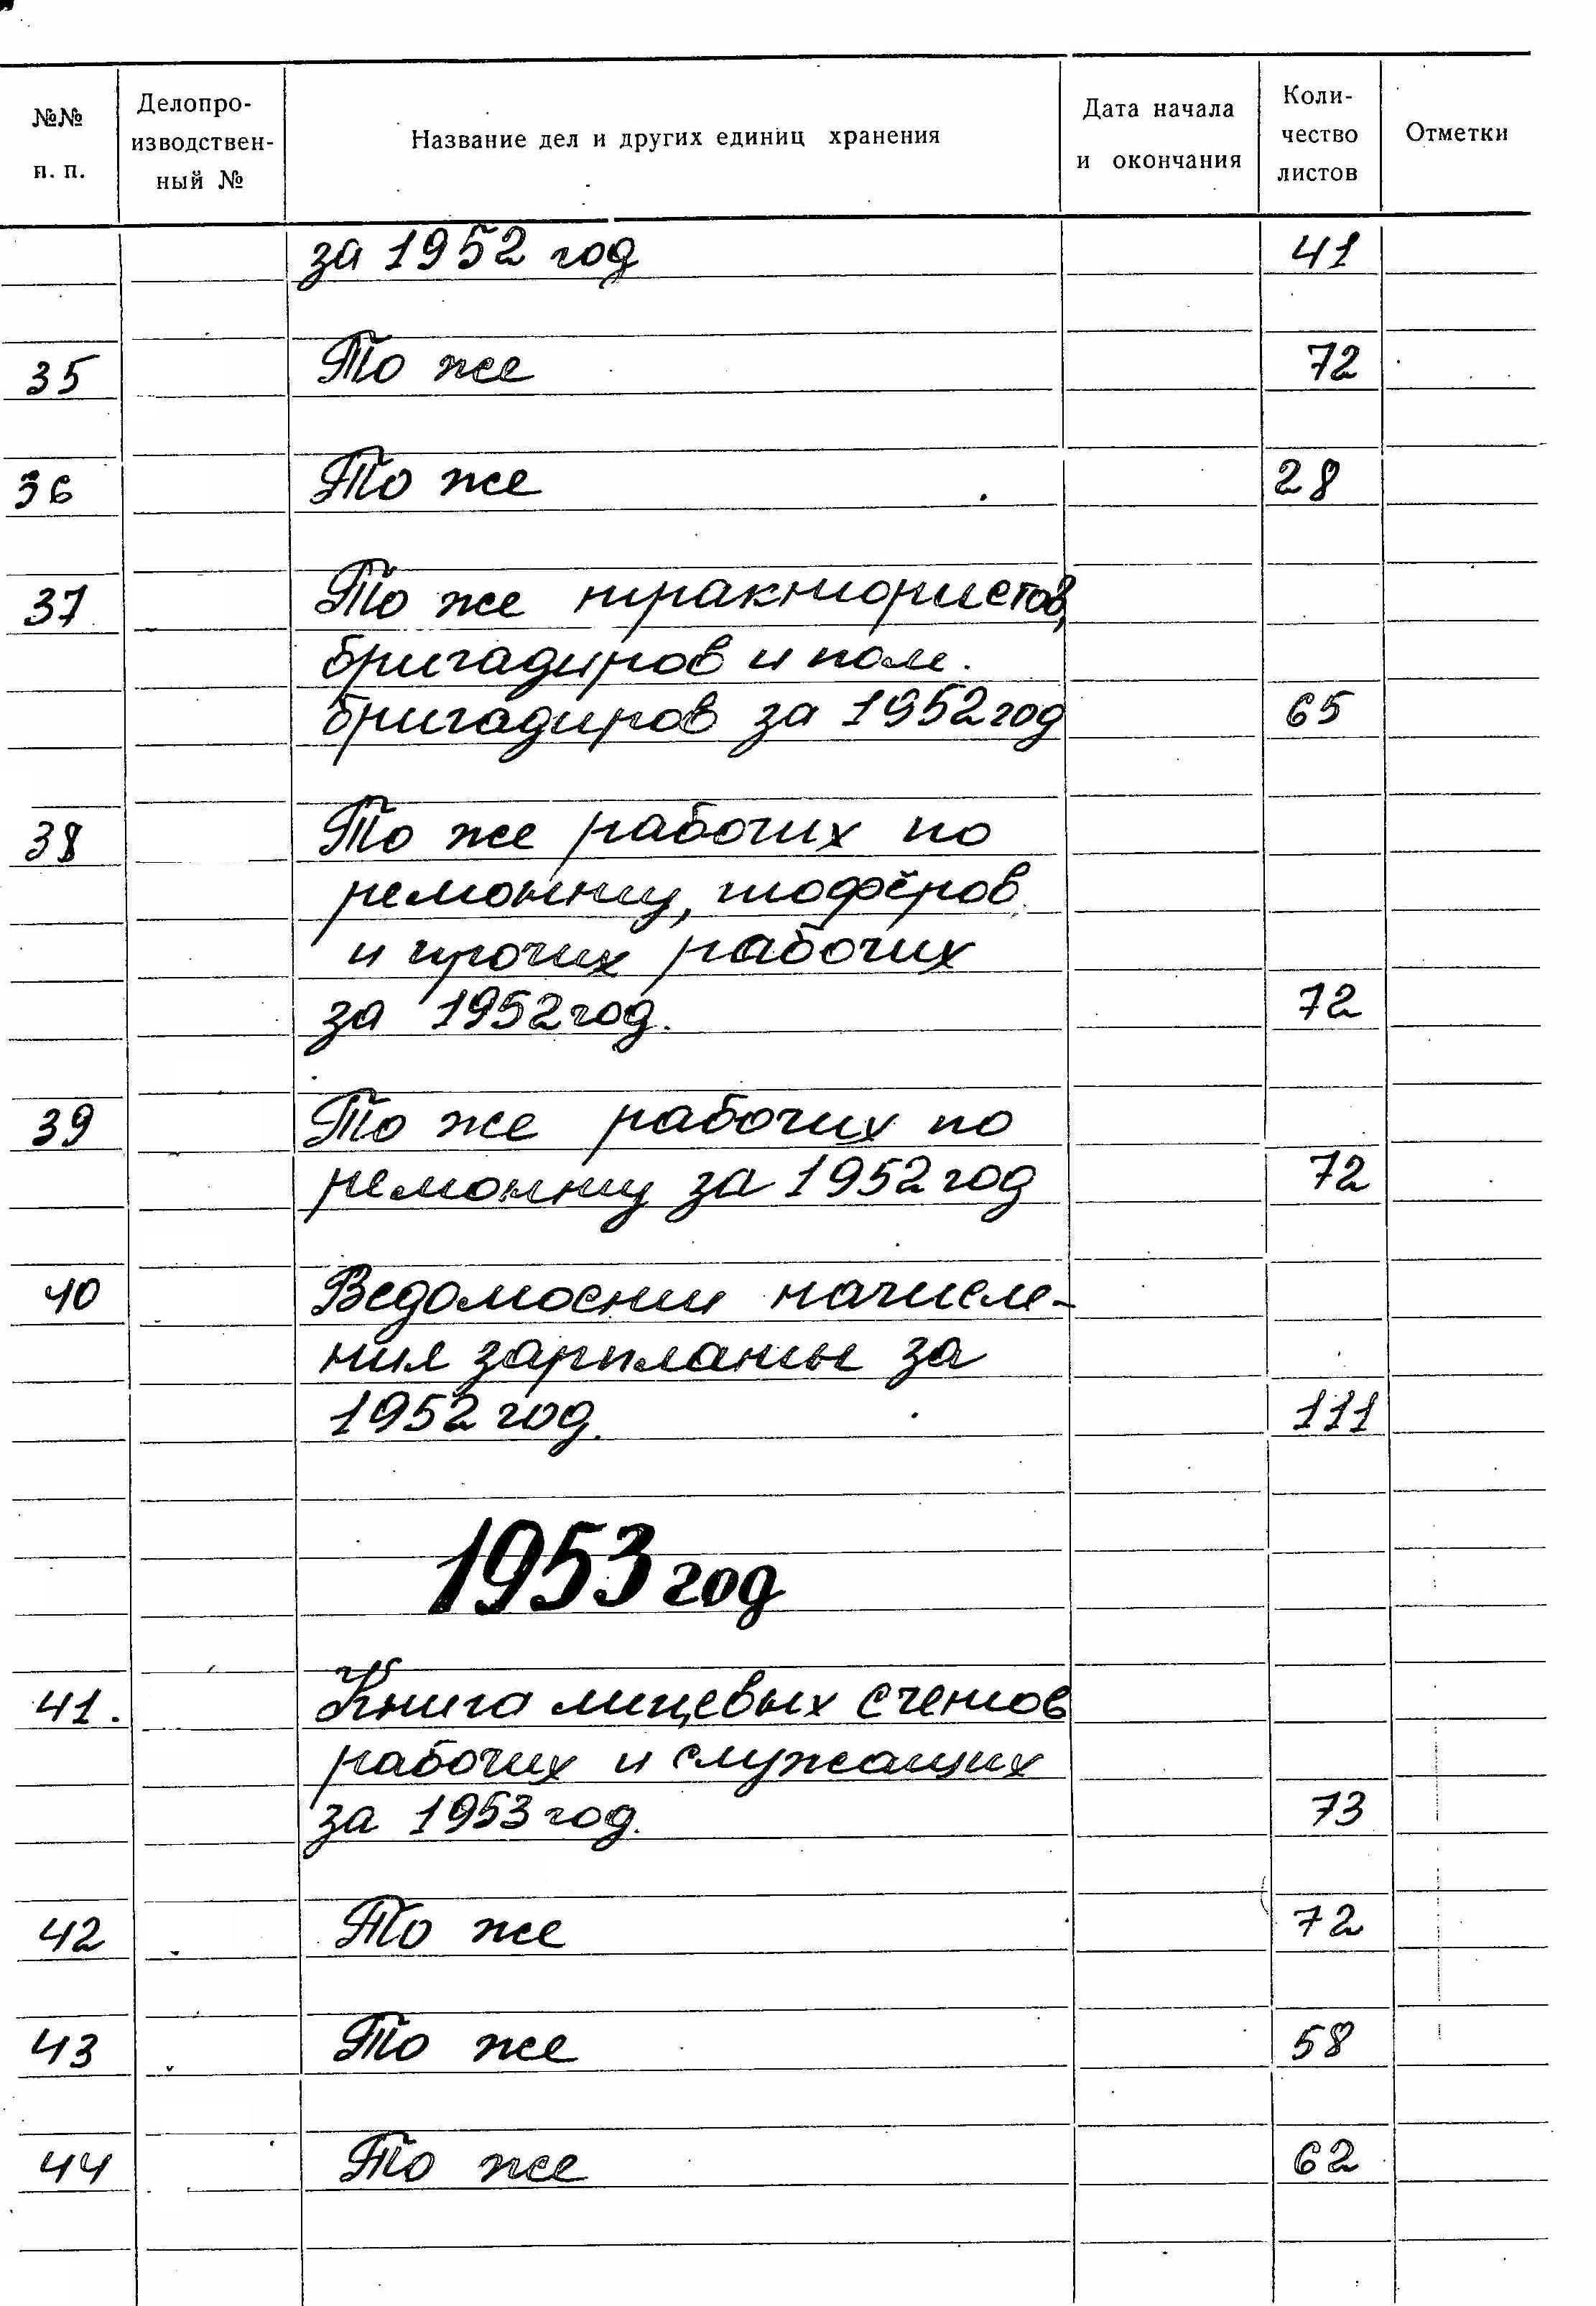 №№ п. п.
Делопро-
изводствен-
ный №
Название дел и других единиц хранения
Дата начала
и окончания
Коли-
чество
листов
Отметки
за 1952 год 41
35 То же 72
36 То же 28
37 То же трактористов,
бригадиров и пом.
бригадиров за 1952 год 65
38 То же рабочих по
ремонту, шофёров
и прочих рабочих
за 1952 год. 72
39 То же рабочих по
ремонту за 1952 год 72
40 Ведомости начисле-
ния зарплаты за
1952 год. 111
1953 год
41. Книга лицевых счетов
рабочих и служащих
за 1953 год. 73
42 То же 72
43 То же 58
44 То же 62